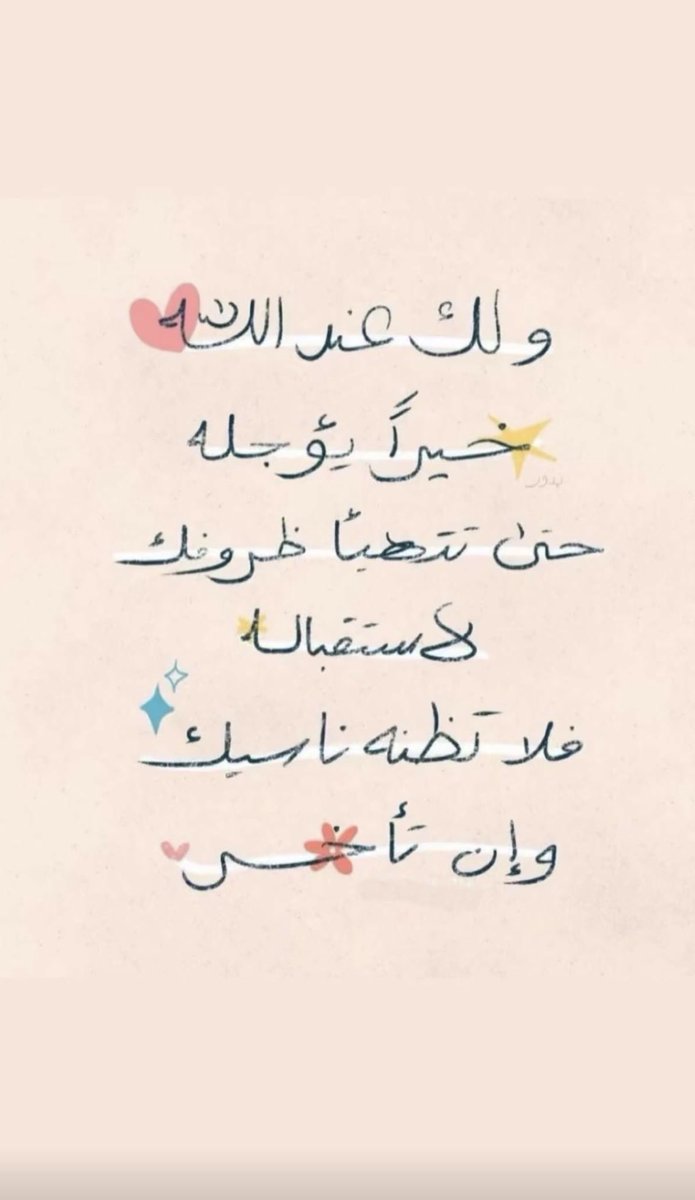 ولك عند الله
خيراً يؤجله
بدور
حتىٰ تتهيأ ظروفك
لاستقباله
فلا تظنه ناسيك
وإن تأخر